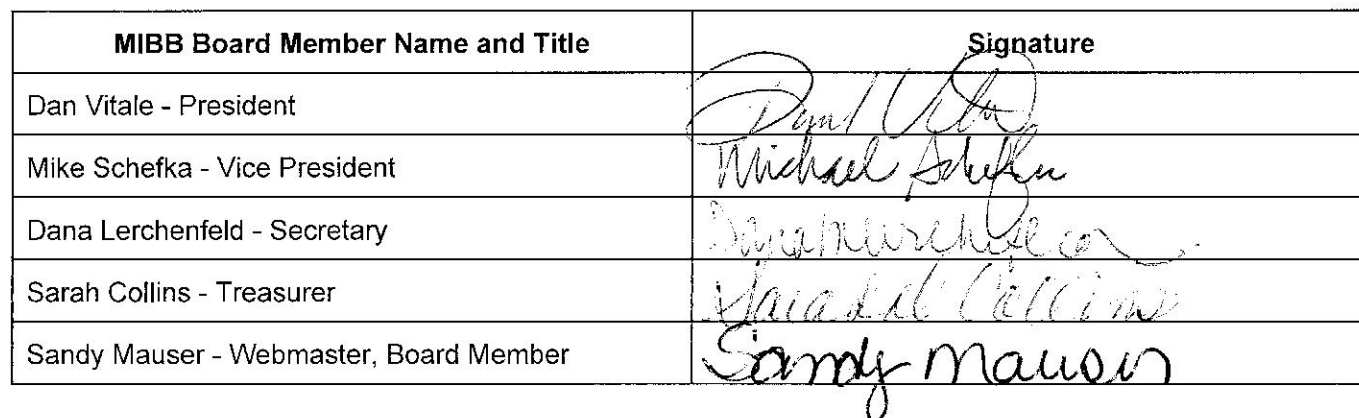 MIBB Board Member Name and Title Signature
Dan Vitale - President
Mike Schefka - Vice President Michael Schefka
Dana Lerchenfeld - Secretary Dana
Sarah Collins - Treasurer Sarah Collins
Sandy Mauser - Webmaster, Board Member Sandy Mauser